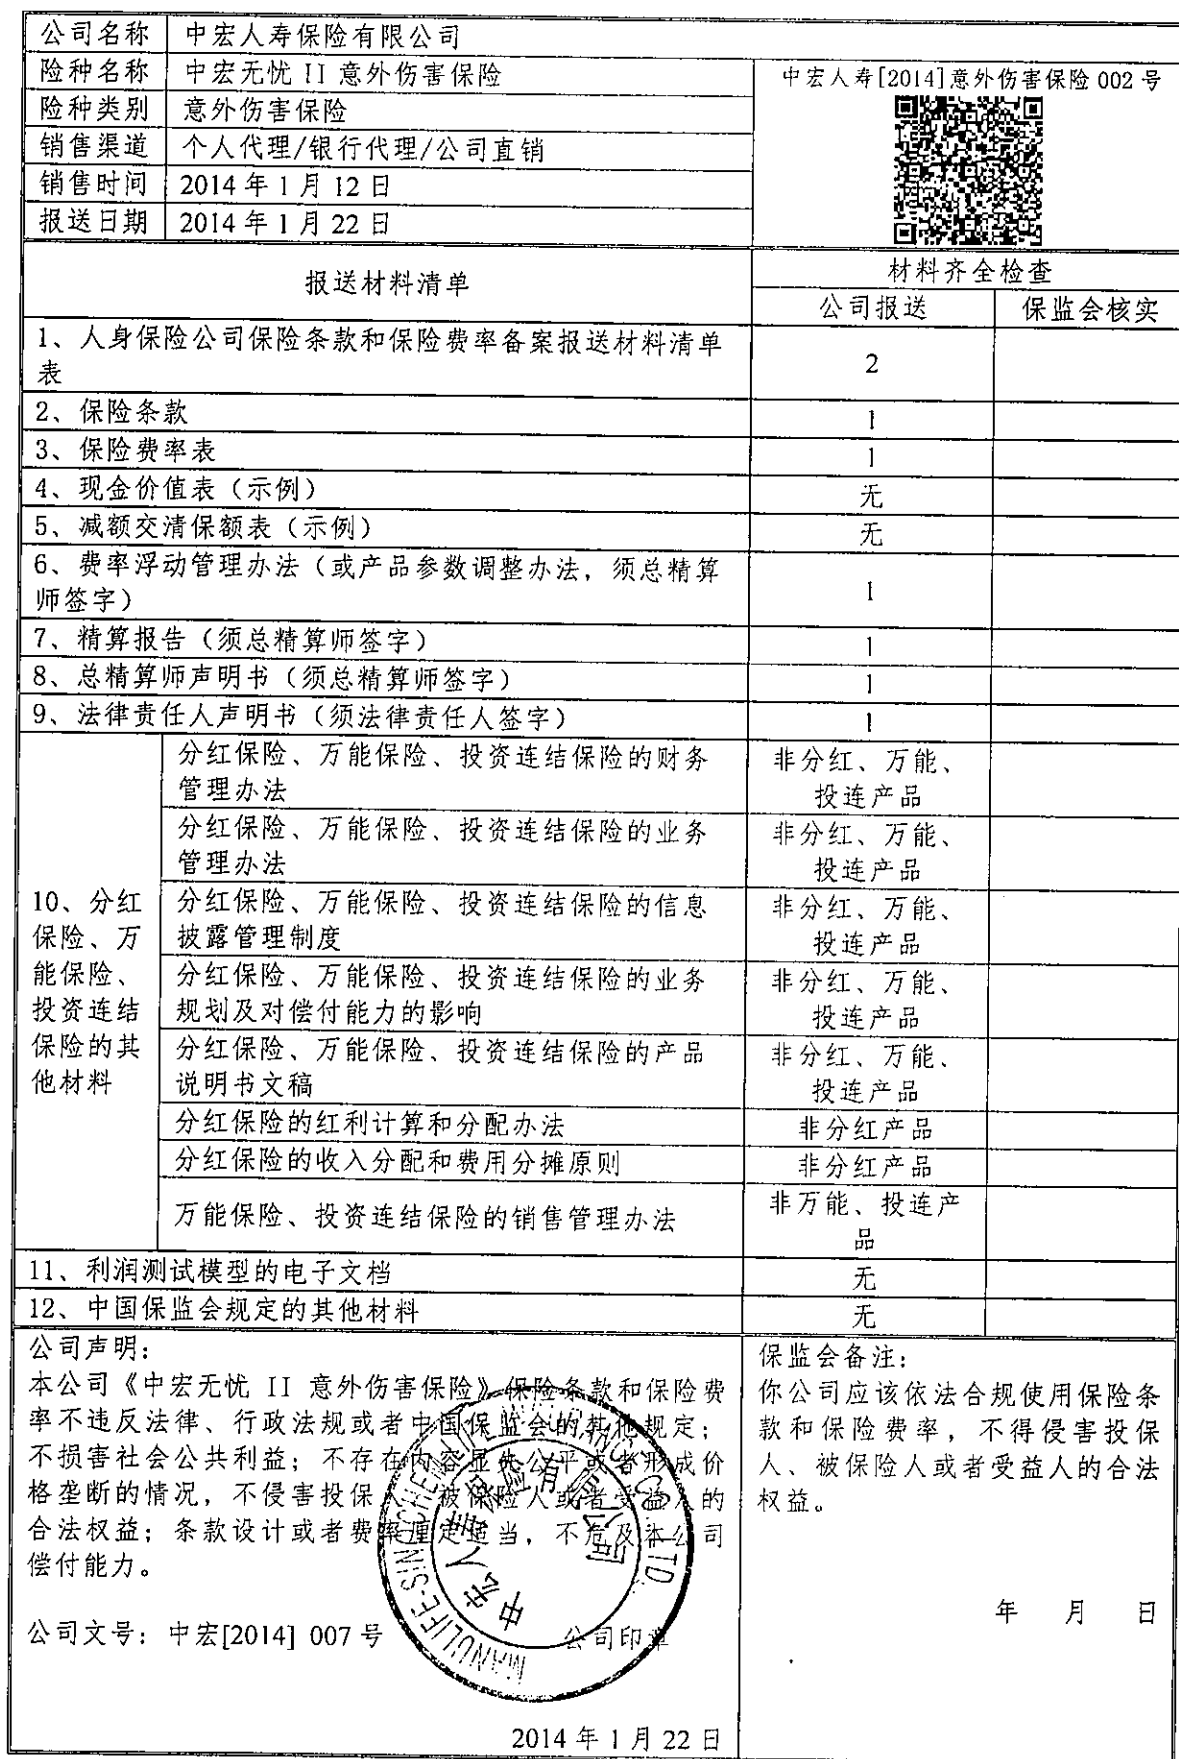 公司名称 中宏人寿保险有限公司
险种名称 中宏无忧 II 意外伤害保险
中宏人寿[2014]意外伤害保险 002 号
险种类别 意外伤害保险
销售渠道 个人代理/银行代理/公司直销
销售时间 2014 年 1 月 12 日
报送日期 2014 年 1 月 22 日
报送材料清单
材料齐全检查
公司报送 保监会核实
1、人身保险公司保险条款和保险费率备案报送材料清单
表
2
2、保险条款 1
3、保险费率表 1
4、现金价值表（示例） 无
5、减额交清保额表（示例） 无
6、费率浮动管理办法（或产品参数调整办法，须总精算
师签字）
1
7、精算报告（须总精算师签字） 1
8、总精算师声明书（须总精算师签字） 1
9、法律责任人声明书（须法律责任人签字） 1
10、分红
保险、万
能保险、
投资连结
保险的其
他材料
分红保险、万能保险、投资连结保险的财务
管理办法
非分红、万能、
投连产品
分红保险、万能保险、投资连结保险的业务
管理办法
非分红、万能、
投连产品
分红保险、万能保险、投资连结保险的信息
披露管理制度
非分红、万能、
投连产品
分红保险、万能保险、投资连结保险的业务
规划及对偿付能力的影响
非分红、万能、
投连产品
分红保险、万能保险、投资连结保险的产品
说明书文稿
非分红、万能、
投连产品
分红保险的红利计算和分配办法 非分红产品
分红保险的收入分配和费用分摊原则 非分红产品
万能保险、投资连结保险的销售管理办法
非万能、投连产
品
11、利润测试模型的电子文档 无
12、中国保监会规定的其他材料 无
公司声明：
本公司《中宏无忧 II 意外伤害保险》保险条款和保险费
率不违反法律、行政法规或者中国保监会的其他规定；
不损害社会公共利益；不存在内容显失公平或者形成价
格垄断的情况，不侵害投保人、被保险人或者受益人的
合法权益；条款设计或者费率厘定适当，不危及本公司
偿付能力。
公司文号：中宏[2014] 007 号 公司印章
2014 年 1 月 22 日
MANULIFE-SINOCHEM LIFE INSURANCE CO. LTD.
中宏人寿保险有限公司
保监会备注：
你公司应该依法合规使用保险条
款和保险费率，不得侵害投保
人、被保险人或者受益人的合法
权益。
年 月 日